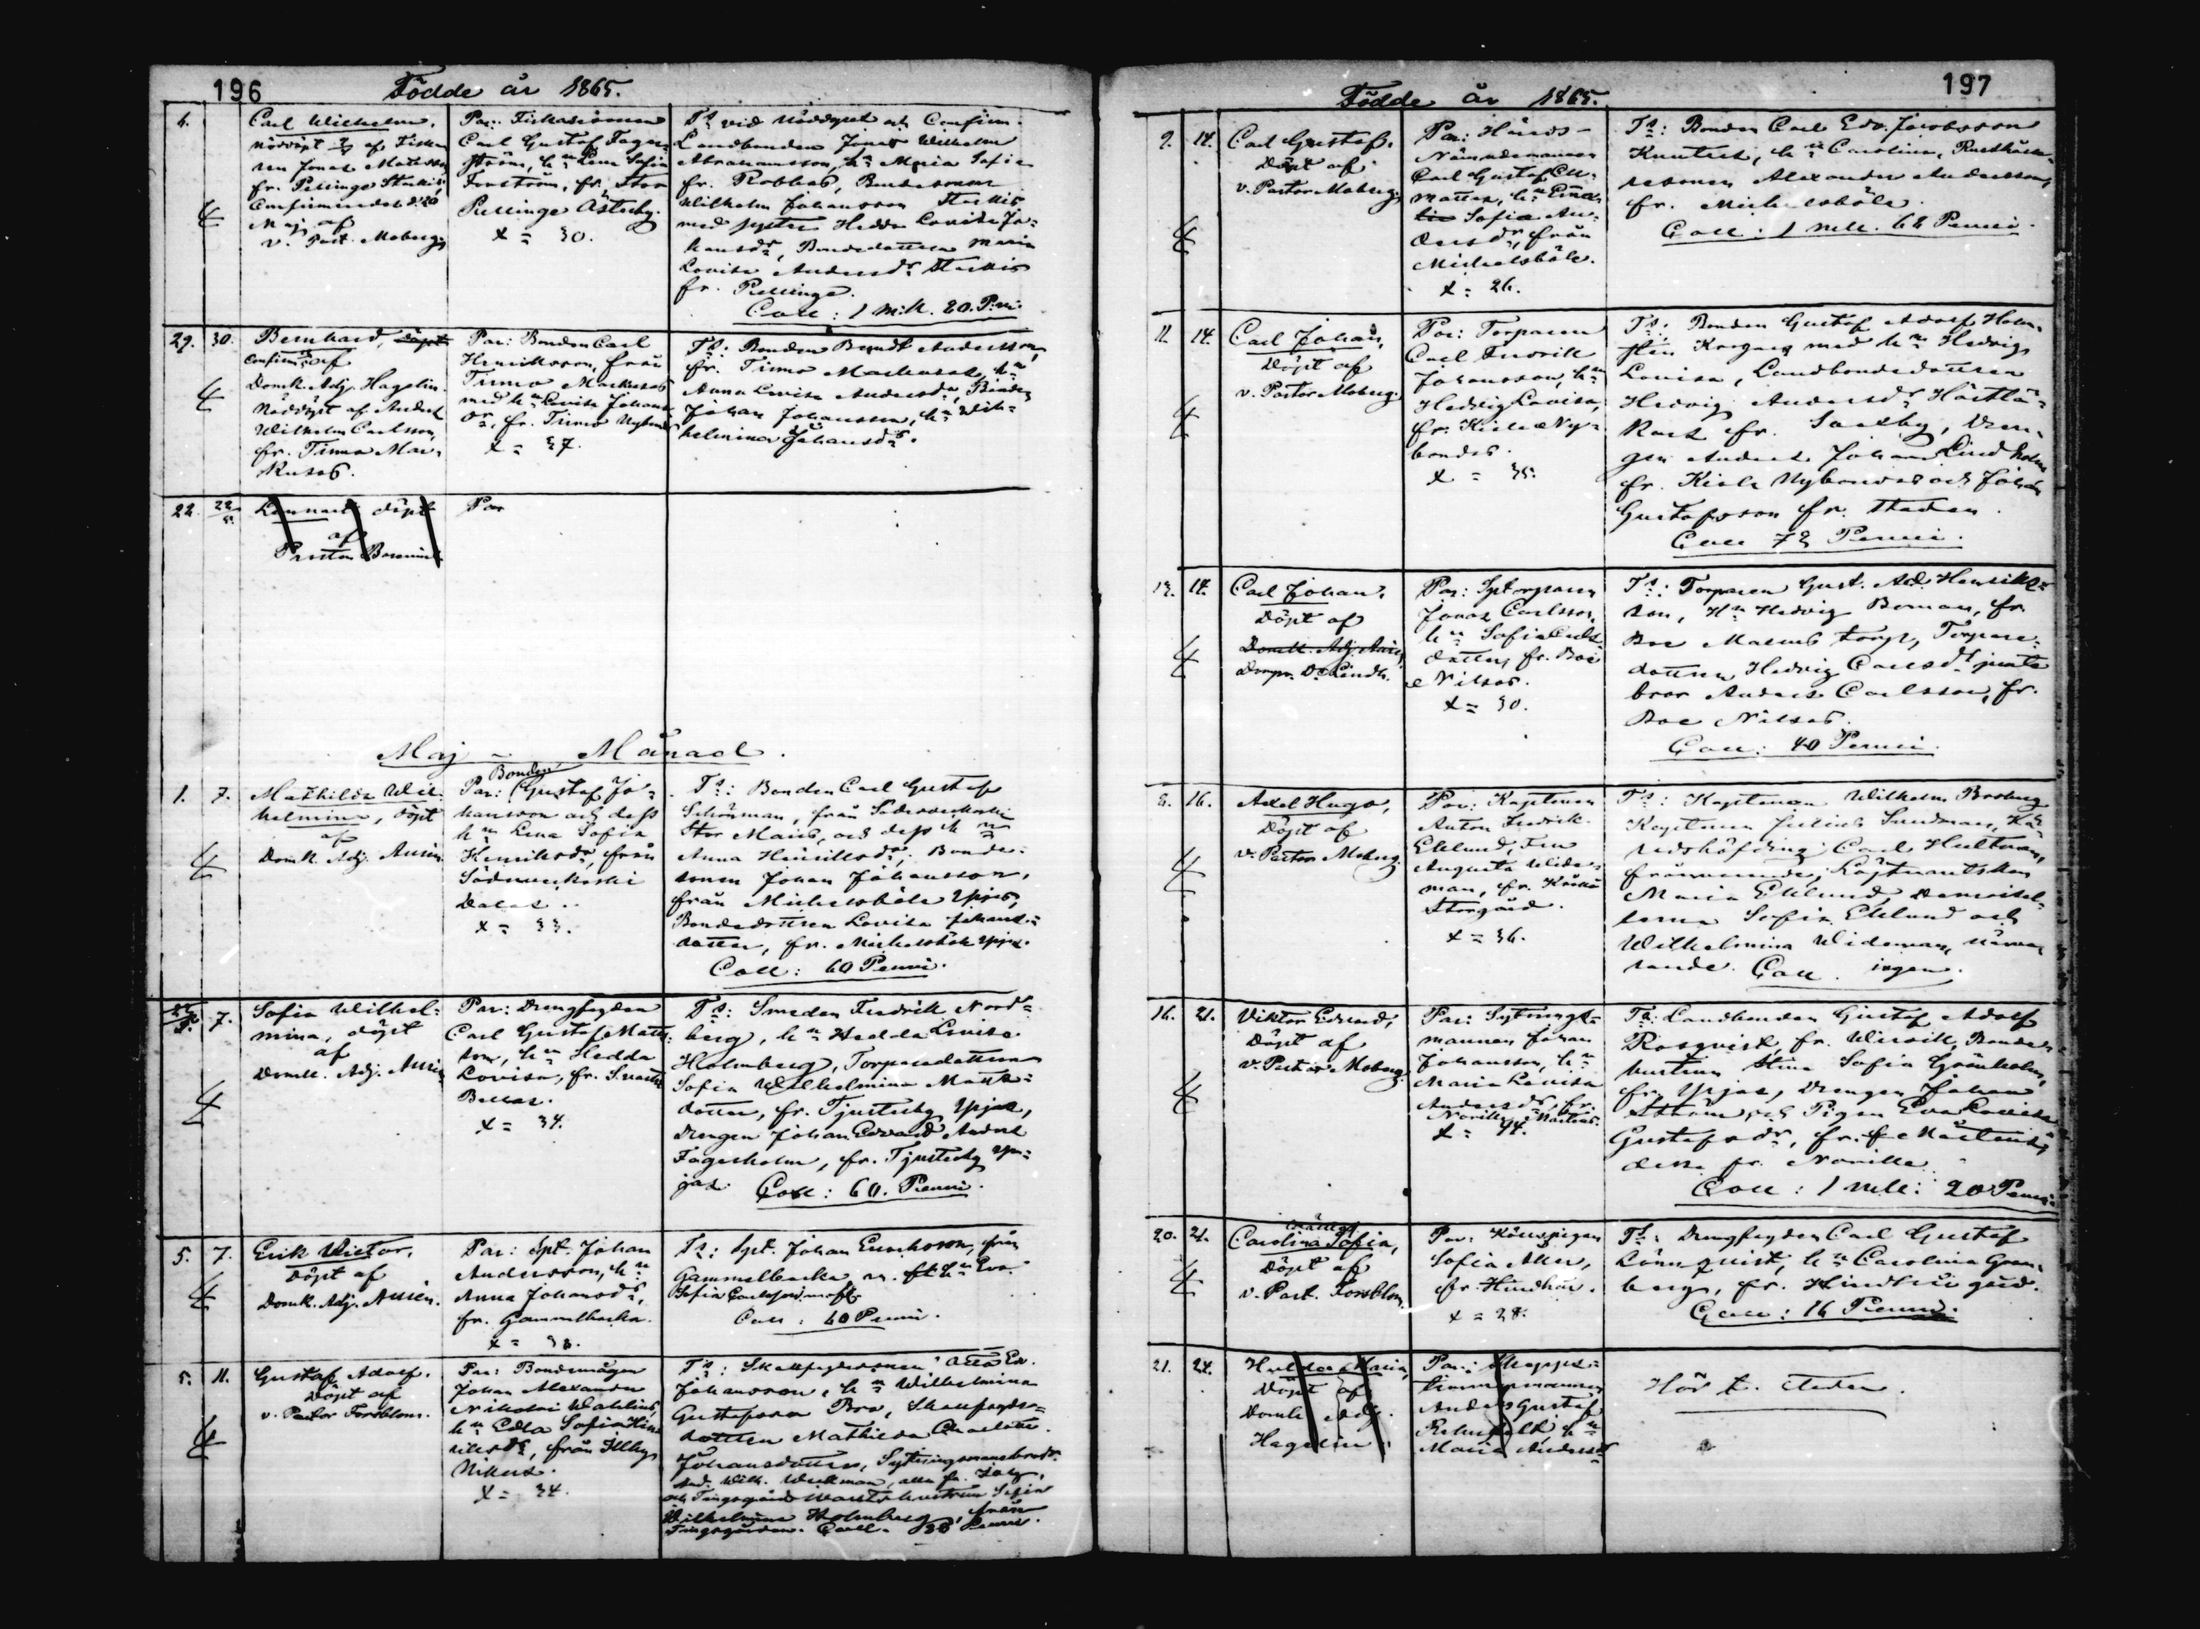 196
Födde år 1865.
4.
Carl Wilhelm,
nöddöpt af Fiska-
ren Jonas Matsson
fr. Pellinge Sturkis,
Confirmerades d. 20
Maj af
v. Past. Moberg
Par: Fiskaremannen
Carl Gustaf Fager-
ström, hu Lena Sofia
fr. Stor
Pellinge Österby.
x = 30.
Ts vid nöddopet och Confirm.
Landbonden Jonas Wilhelm
Abrahamsson, hu Maria Sofia
fr. Robbas, Bondesonen
Wilhelm Johansson Sturkis
med syster Hedda Lovisa Jo-
hansdr, Bondedottren Maria
Lovisa Andersdr Sturkis
fr. Pellinge.
Coll: 1 m:k. 20 P:ni.
29. 30.
Bernhard, döpt
Confirm. af
Domk. Adj. Hagelin
Nöddöpt af Anders
Wilhelm Carlsson,
fr. Tirmo Mar-
kusas.
Par: Bonden Carl
Henriksson, från
Tirmo Markusas
med hu Lovisa Johans-
dr, fr. Tirmo Nybondas
x = 37.
Ts: Bonden Berndt Andersson,
fr. Tirmo Markusas, hu
Anna Lovisa Andersdr, Bonden
Johan Johansson, hu Wil-
helmina Johansdr.
22. 22/5.
Lennart döpt
af
Pastor Borenius
Par
Maj - Månad.
1. 7.
Mathilda Wil-
helmina, döpt
af
Domk. Adj. Ausén
Bonden
Par: Gustaf Jo-
hansson och dess
hu Lena Sofia
Henriksdr, från
Söderveckoski
Dalas.
x = 33.
Ts: Bonden Carl Gustaf
Schönman, från Söderveckoski
Stor Mais, och dess hu
Anna Henriksdr, Bonde-
sonen Johan Johansson,
från Mickelsböle Ypjas,
Bondedottren Lovisa Johans-
dotter, fr. Mickelsböle Ypjas.
Coll: 60 Penni.
7.
Sofia Wilhel-
mina, döpt
af
Domk. Adj. Ausén
Par: Drengfogden
Carl Gustaf Matts-
son, hu Hedda
Lovisa, fr. Svartbäck
Bellas.
x = 34.
Ts: Smeden Fredrik Nord-
berg, hu Hedda Lovisa
Holmberg, Torparedottren
Sofia Wilhelmina Matts-
dotter, fr. Tjusterby Ypjas,
drengen Johan Edvard Anders
Fagerholm, fr. Tjusterby Yp-
jas. Coll: 60. Penni.
5. 7.
Erik Victor,
Döpt af
Domk. Adj. Ausén.
Par: Spt. Johan
Andersson, hu
Anna Johansdr,
fr. Gammelbacka.
x = 33.
Ts: Spt. Johan Ericksson, från
Gammelbacka m. ft hu Eva
Sofia
Coll: 60 Penni.
5. 11.
Gustaf Adolf,
Döpt af
v. Pastor Forsblom.
Par: Bondemågen
Johan Alexander
Nikolai Wahlius
hu Edla Sofia Hen-
riksdr, från Illby
Nikus.
x = 34.
Ts: Skallfogdesonen Otto Ed.
Johansson, hu Wilhelmina
Gustafsson Bro, Skallfogde-
dottren Mathilda Charlotta
Johansdotter, Sytningsmansbrodr.
And. Wilh. Weckman, alla fr. Illby,
Wilhelmina Holmberg, från
Tingsgården. Coll. 38 Penni.
197
Födde år 1865.
9. 14.
Carl Gustaf,
Döpt af
v. Pastor Moberg.
Par: Härads-
Nämndemannen
Carl Gustaf Cle-
mattes, hu Emae-
lia Sofia An-
dersdr, från
Mickelsböle.
x = 26.
Ts: Bonden Carl Edv. Jacobsson
Knutas, hu Carolina, Rusthålla-
resonen Alexander Andersson,
fr. Mickelsböle.
Coll: 1 mk. 68 Penni.
11. 14.
Carl Johan,
Döpt af
v. Pastor Moberg.
Par: Torparen
Carl Fredrik
Johansson, hu
Hedvig Lovisa,
fr. Kiala Ny-
bondas.
x = 35.
Ts: Bonden Gustaf Adolf Holm-
sten Krogars med hu Hedvig
Lovisa, Landbondedottren
Hedvig Andersdr
fr. Saxby, Dren-
gen Anders Johan Lindholm
fr. Kiala Nybondas och Johan
Gustafsson fr. Staden.
Coll 72 Penni.
13. 14.
Carl Johan,
Döpt af
Domk. Adj. Ausén
Dompr. D. Lindh.
Par: Sptorparen
Jonas Carlsson,
hu Sofia Carls-
dotter, fr. Boe
Nilsas.
x = 30.
Ts: Torparen Gust. Ad. Henriks-
son, Hu Hedvig Boman, fr.
Boe Matts torp, Torpare-
dottren Hedvig Carlsdr jemte
bror Anders Carlsson, fr.
Boe Nilsas.
Coll: 40 Penni.
8. 16.
Axel Hugo,
Döpt af
v. Pastor Moberg.
Par: Kaptenen
Anton Fredrik
Eklund, Fru
Augusta Wide-
man, fr. Kråkö
Storgård.
x = 36.
Ts: Kaptenen Wilhelm Broberg
Kaptenen Julius Sundman, Hä-
radshöfding Carl Hultman,
frånvarande, Löjtnantskan
Maria Eklund, Demoisel-
lerna Sofia Eklund och
Wilhelmina Wideman, närva-
rande. Coll. ingen.
16. 21.
Viktor Edvard,
Döpt af
v. Pastor Moberg.
Par: Sytnings-
mannen Johan
Johansson, hu
Maria Lovisa
Andersdr, fr.
Norike Mårtens.
x = 44.
Ts: Landbonden Gustaf Adolf
Rosqvist, fr. Wirvik, Bonde-
hustrun Stina Sofia Grönholm,
fr. Ypjas, Drengen Johan
Ström, och Pigan Eva Lovisa
Gustafsdr, fr. Mårtensby
dera fr. Norike.
Coll: 1 mk: 20 Penni.
20. 21.
oäkta
Carolina Sofia,
Döpt af
v. Past. Forsblom.
Par: Kökspigan
Sofia Aker,
fr. Hindhår.
x = 28.
Ts: Drengfogden Carl Gustaf
Lönnqvist, hu Carolina Gran-
berg, fr. Hindhår gård.
Coll: 16 Penni.
21. 24.
Hulda Maria,
Döpt af
Domk. Adj.
Hagelin.
Par: Skepps-
timmermannen
Anders Gustaf
Rehnfelt, hu
Maria Andersdr
Hör t. Staden.